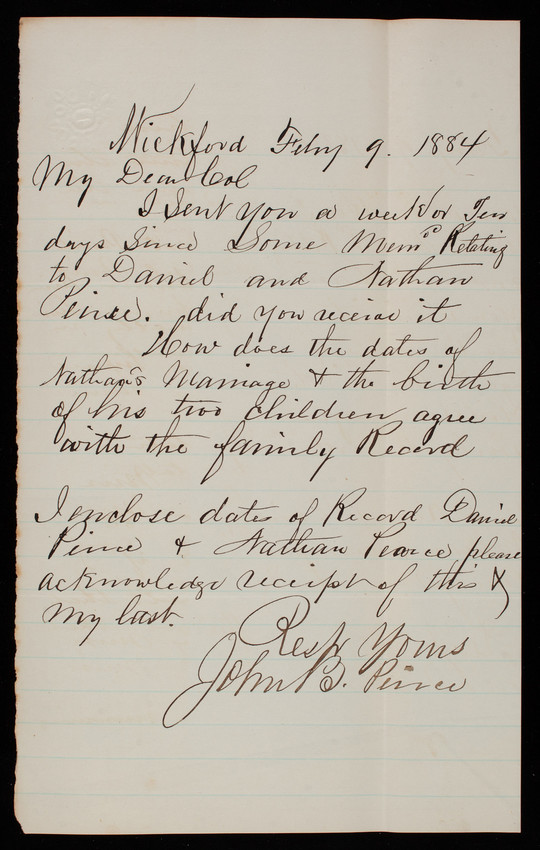 Wickford Feby 9. 1884
My Dear Col
I Sent you a week or Ten
days Since Some Mem⁰ˢ Relating
to Daniel and Nathan
Peirce. did you receive it
How does the dates of
Nathan's Marriage & the birth
of his two children agree
with the family Record
I enclose dates of Record Daniel
Peirce & Nathan Pearce please
acknowledge receipt of this &
my last.
Resp Yours
John B. Peirce